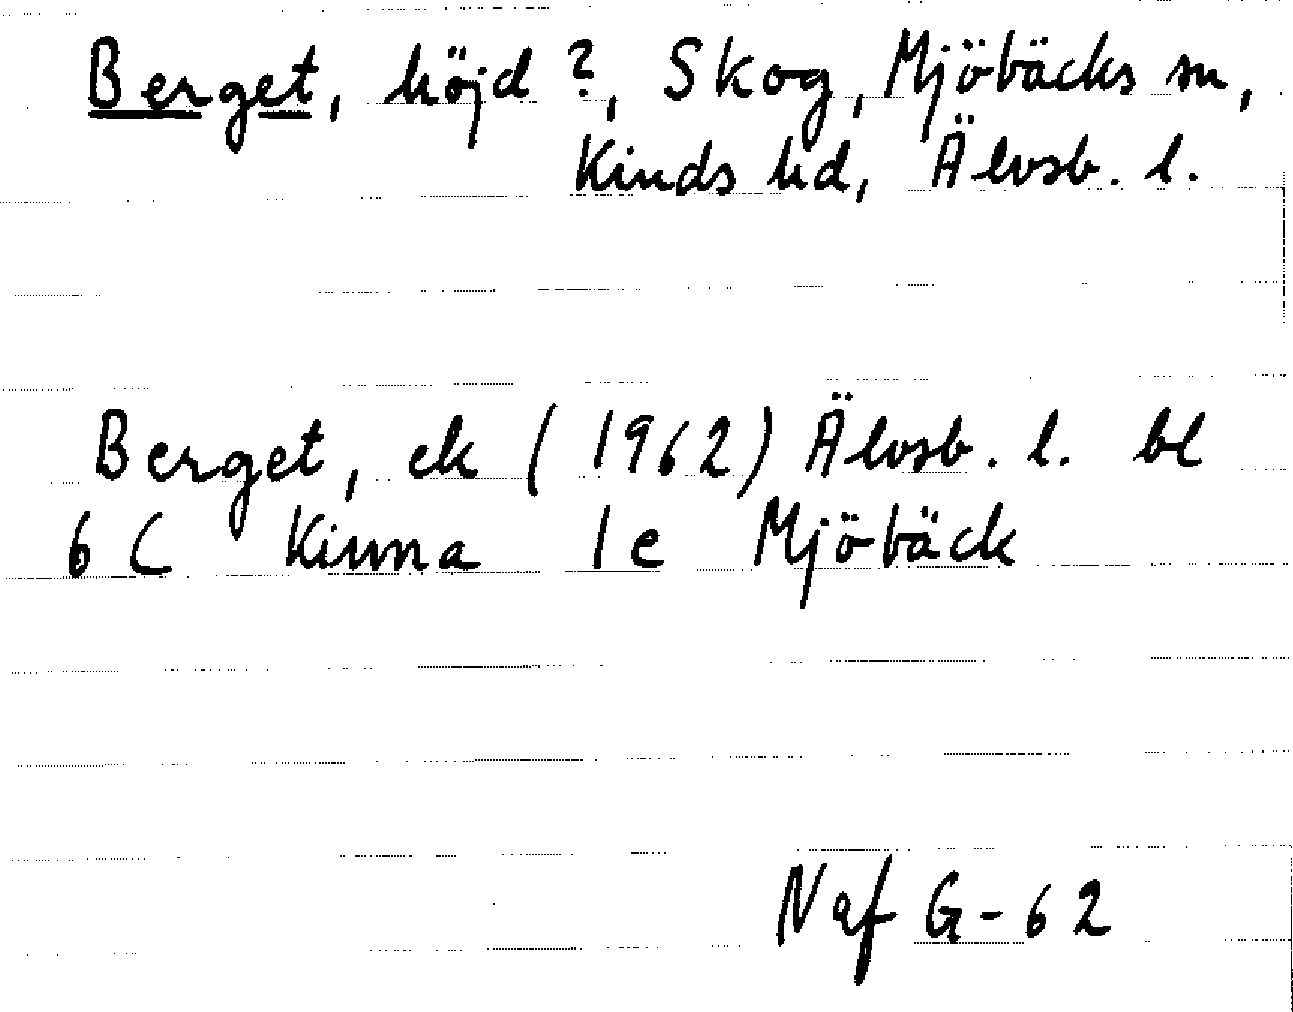 Berget, höjd?, Skog, Mjöbäcks sn,
Kinds hd, Älvsb. l.
Berget, ek (1962) Älvsb. l. bl
6 C Kinna 1e Mjöbäck
Naf G-62